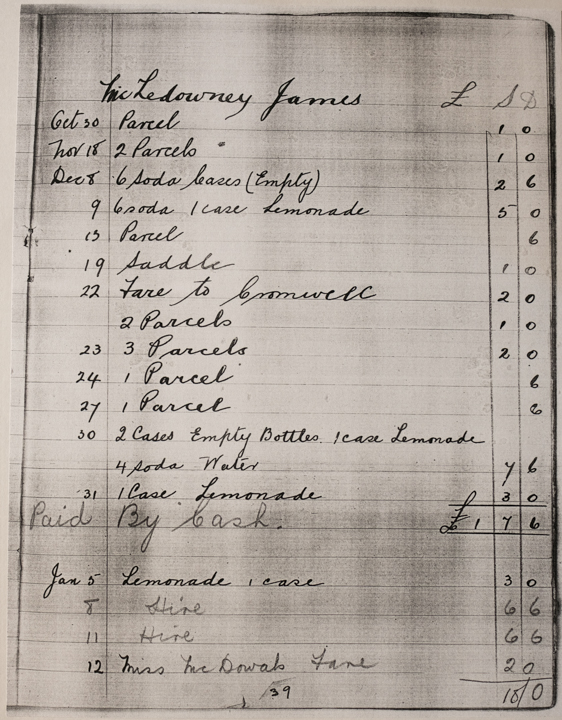 McLedowney James £ S D
Oct 30 Parcel 1 0
Nov 18 2 Parcels 1 0
Dec 8 6 Soda Cases (Empty) 2 6
9 6 soda 1 case Lemonade 5 0
15 Parcel 6
19 Saddle 1 0
22 Fare to Cromwell 2 0
2 Parcels 1 0
23 3 Parcels 2 0
24 1 Parcel 6
27 1 Parcel 6
30 2 Cases Empty Bottles. 1 case Lemonade
4 soda Water 7 6
31 1 Case Lemonade 3 0
Paid By Cash. £ 1 7 6
Jan 5 Lemonade 1 case 3 0
8 Hire 6 6
11 Hire 6 6
12 Miss McDowals Fare 2 0
39 18/0